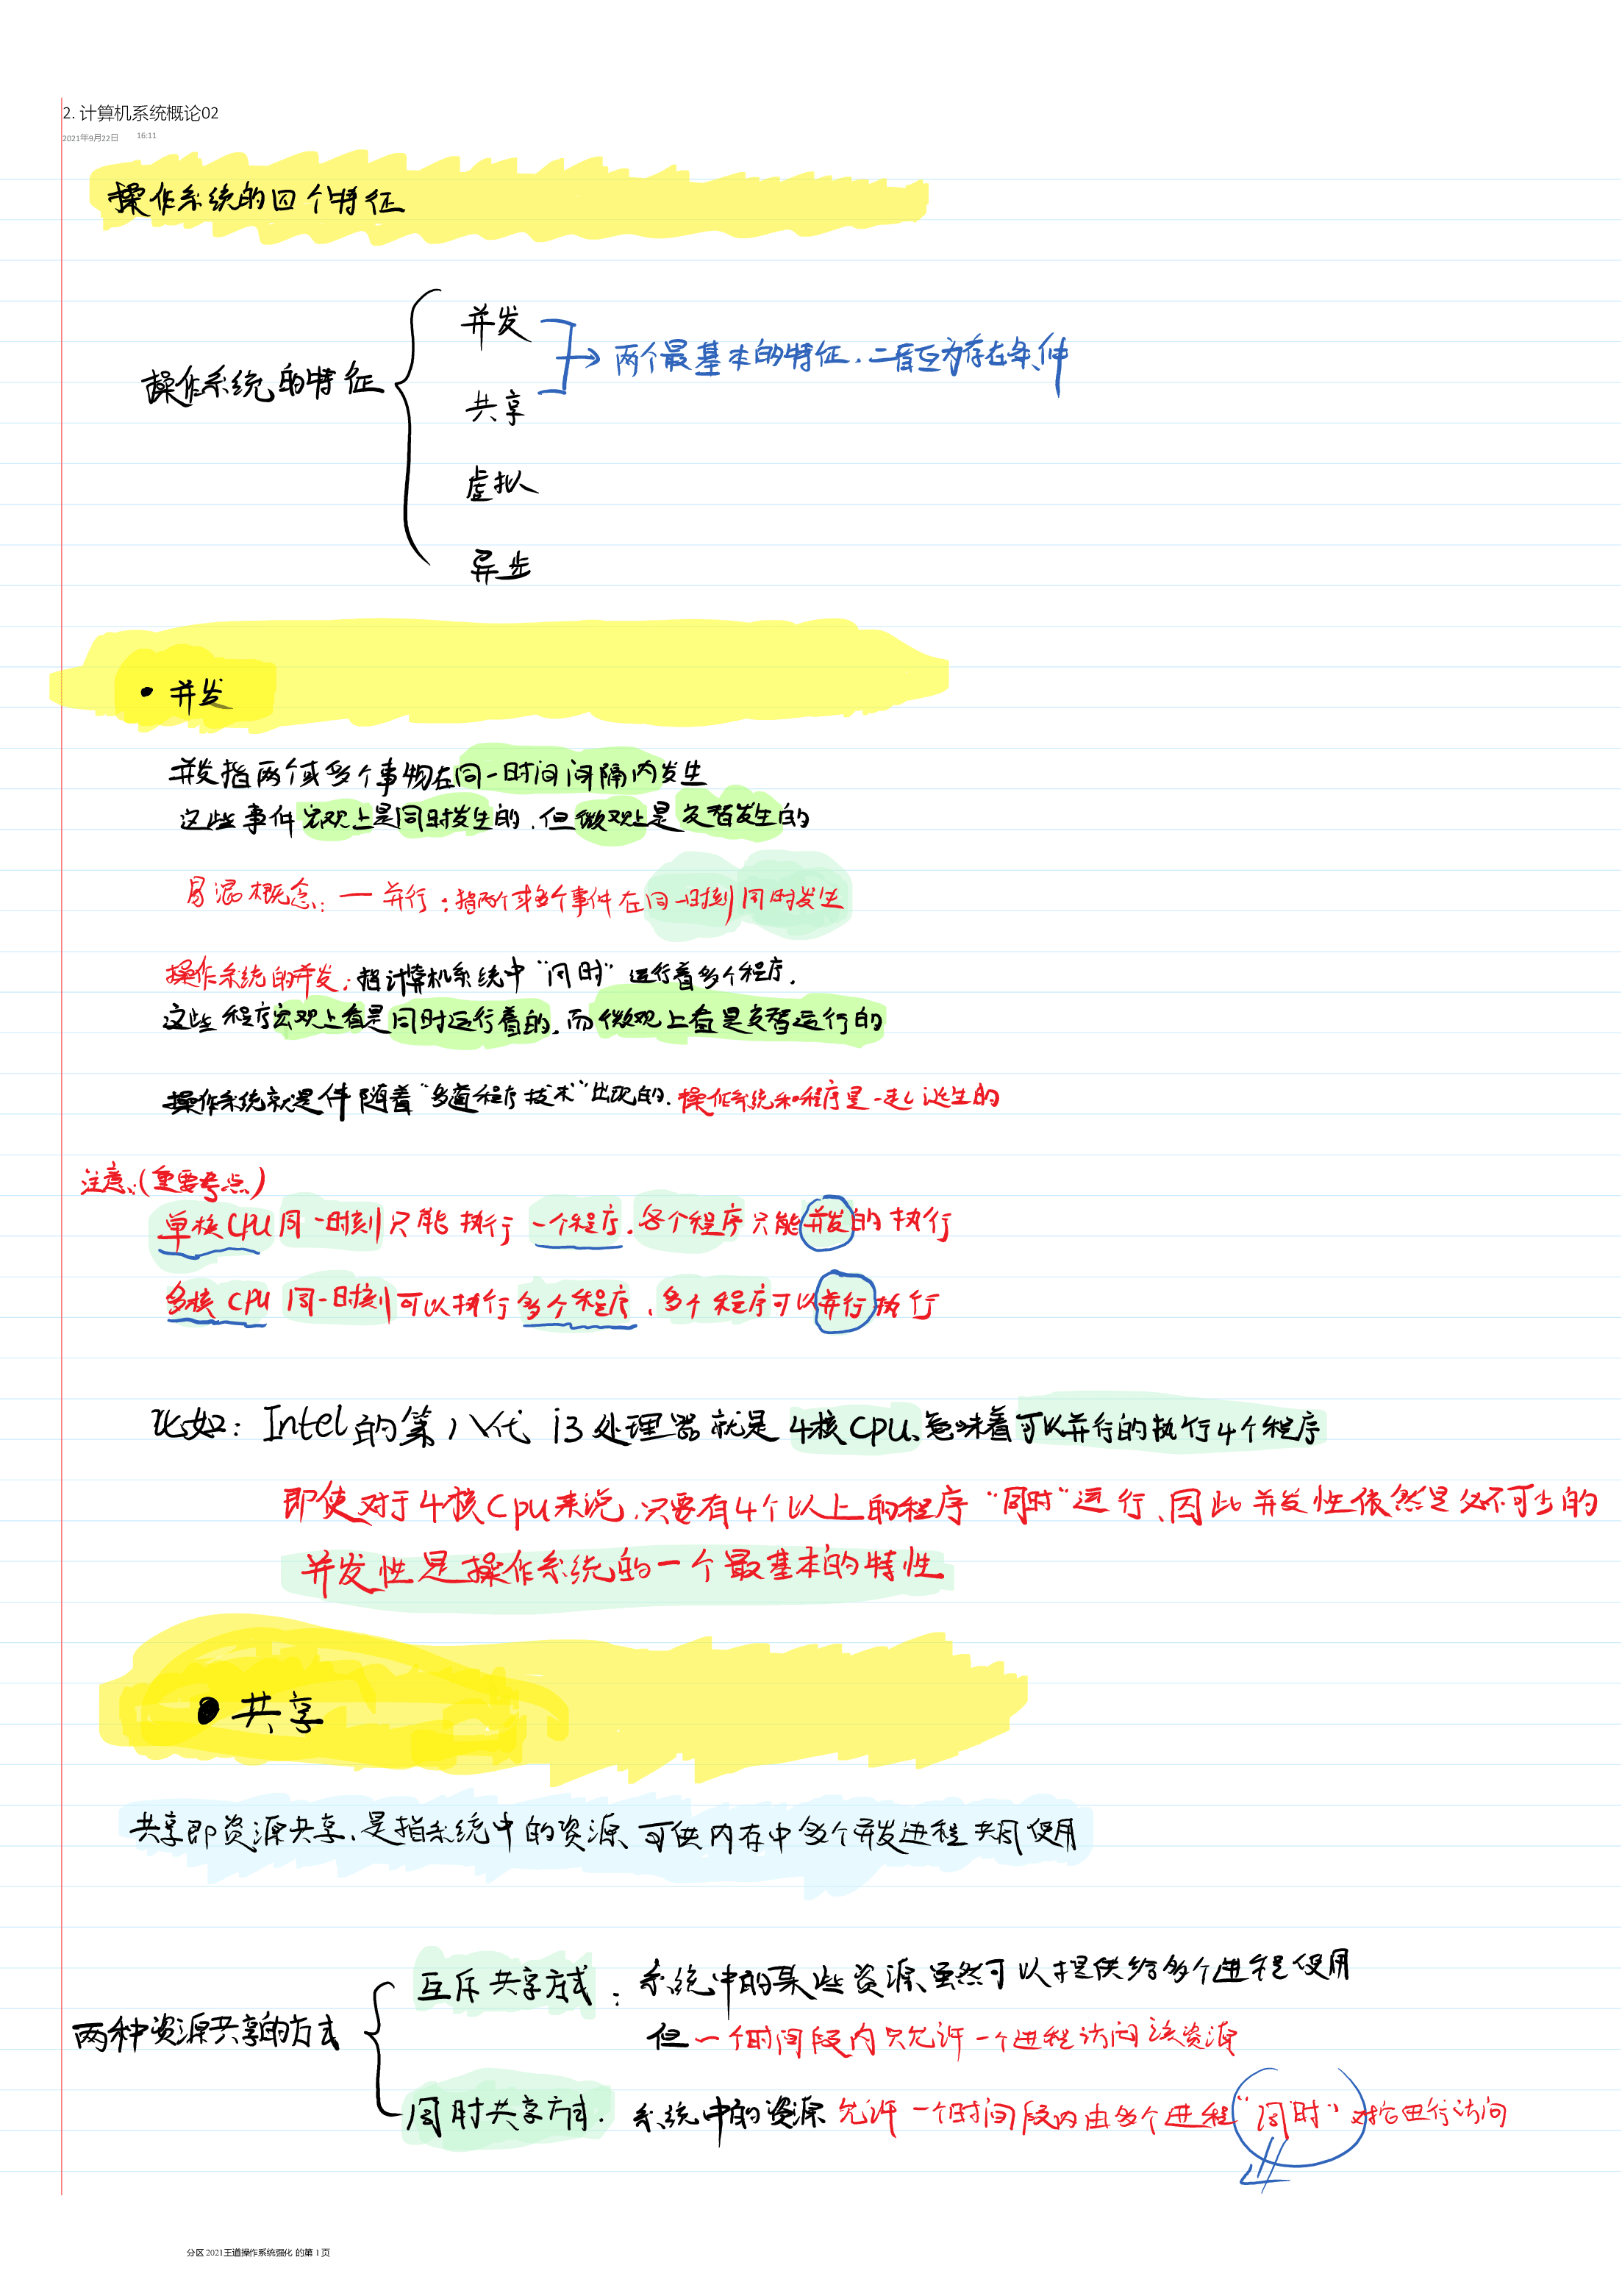 2. 计算机系统概论02
2021年9月22日 16:11
操作系统的四个特征
操作系统的特征
并发
共享
虚拟
异步
两个最基本的特征,二者互为存在条件
• 并发
并发指两个或多个事物在同一时间间隔内发生
这些事件宏观上是同时发生的,但微观上是交替发生的
易混概念:— 并行:指两个或多个事件在同一时刻同时发生
操作系统的并发:指计算机系统中“同时”运行着多个程序.
这些程序宏观上看是同时运行着的,而微观上看是交替运行的
操作系统就是伴随着“多道程序技术”出现的.操作系统和程序是一起诞生的
注意:(重要考点)
单核CPU同一时刻只能执行一个程序.各个程序只能并发的执行
多核CPU同一时刻可以执行多个程序、多个程序可以并行执行
比如:Intel的第八代 i3处理器就是4核CPU、意味着可以并行的执行4个程序
即使对于4核CPU来说,只要有4个以上的程序“同时”运行、因此并发性依然是必不可少的
并发性是操作系统的一个最基本的特性
• 共享
共享即资源共享、是指系统中的资源、可供内存中多个并发进程共同使用
两种资源共享的方式
互斥共享方式:系统中的某些资源、虽然可以提供给多个进程使用
但一个时间段内只允许一个进程访问该资源
同时共享方式.系统中的资源允许一个时间段内由多个进程“同时”对它进行访问
分区 2021王道操作系统强化 的第 1 页